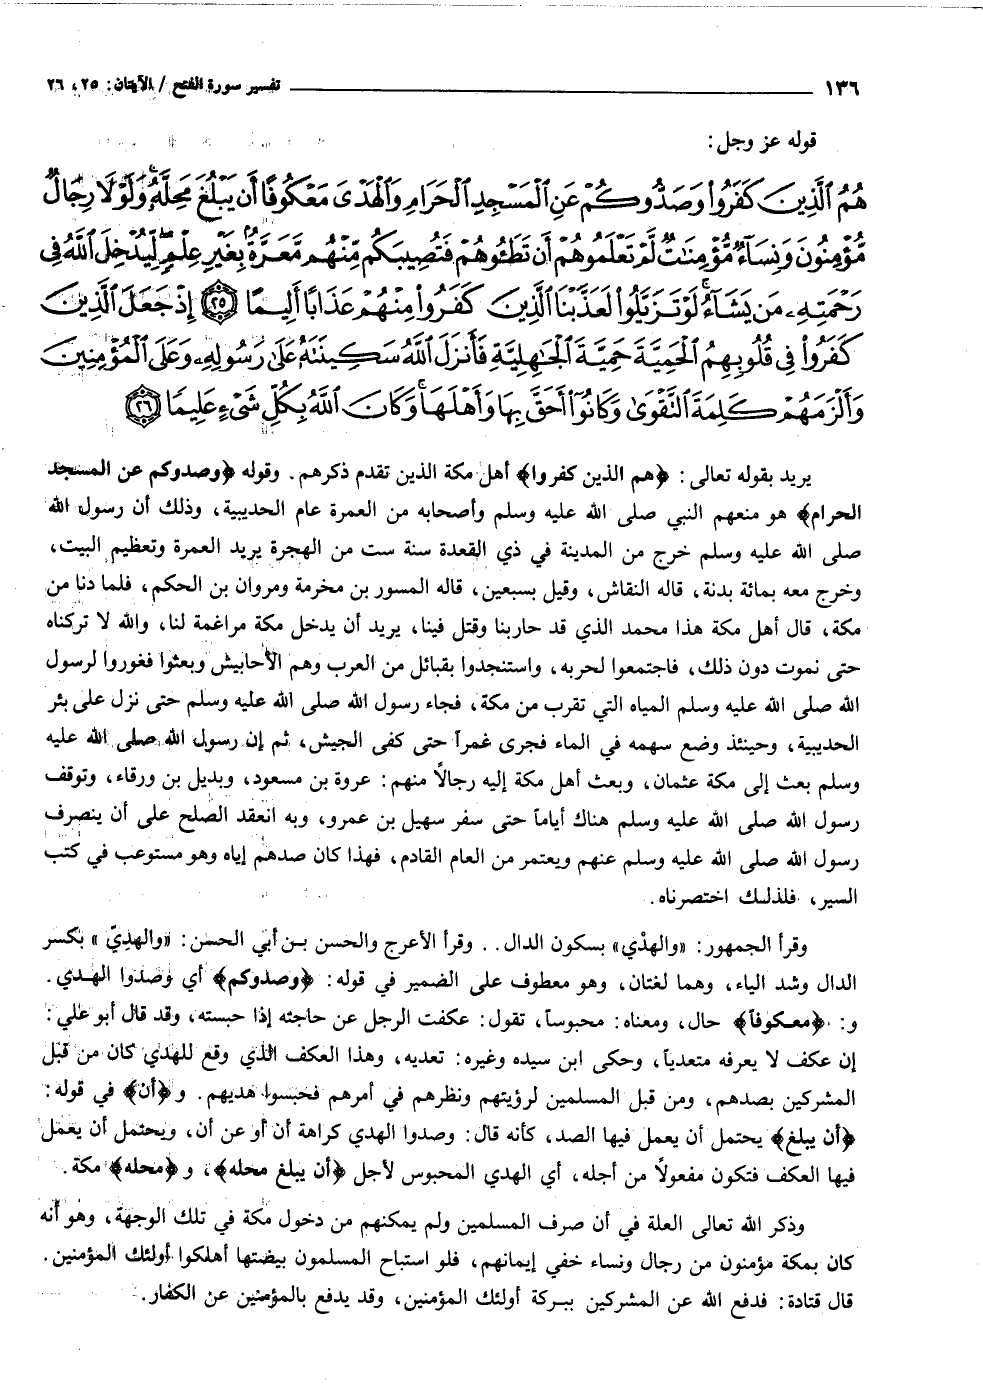 ١٣٦ تفسير سورة الفتح / الآيتان: ٢٥، ٢٦
قوله عز وجل:
هُمُ ٱلَّذِينَ كَفَرُوا۟ وَصَدُّوكُمْ عَنِ ٱلْمَسْجِدِ ٱلْحَرَامِ وَٱلْهَدْىَ مَعْكُوفًا أَن يَبْلُغَ مَحِلَّهُۥ ۚ وَلَوْلَا رِجَالٌ
مُّؤْمِنُونَ وَنِسَآءٌ مُّؤْمِنَٰتٌ لَّمْ تَعْلَمُوهُمْ أَن تَطَـُٔوهُمْ فَتُصِيبَكُم مِّنْهُم مَّعَرَّةٌۢ بِغَيْرِ عِلْمٍ ۖ لِّيُدْخِلَ ٱللَّهُ فِى
رَحْمَتِهِۦ مَن يَشَآءُ ۚ لَوْ تَزَيَّلُوا۟ لَعَذَّبْنَا ٱلَّذِينَ كَفَرُوا۟ مِنْهُمْ عَذَابًا أَلِيمًا ۝٢٥ إِذْ جَعَلَ ٱلَّذِينَ
كَفَرُوا۟ فِى قُلُوبِهِمُ ٱلْحَمِيَّةَ حَمِيَّةَ ٱلْجَٰهِلِيَّةِ فَأَنزَلَ ٱللَّهُ سَكِينَتَهُۥ عَلَىٰ رَسُولِهِۦ وَعَلَى ٱلْمُؤْمِنِينَ
وَأَلْزَمَهُمْ كَلِمَةَ ٱلتَّقْوَىٰ وَكَانُوٓا۟ أَحَقَّ بِهَا وَأَهْلَهَا ۚ وَكَانَ ٱللَّهُ بِكُلِّ شَىْءٍ عَلِيمًا ۝٢٦
يريد بقوله تعالى: ﴿هم الذين كفروا﴾ أهل مكة الذين تقدم ذكرهم. وقوله ﴿وصدوكم عن المسجد
الحرام﴾ هو منعهم النبي صلى الله عليه وسلم وأصحابه من العمرة عام الحديبية، وذلك أن رسول الله
صلى الله عليه وسلم خرج من المدينة في ذي القعدة سنة ست من الهجرة يريد العمرة وتعظيم البيت،
وخرج معه بمائة بدنة، قاله النقاش، وقيل بسبعين، قاله المسور بن مخرمة ومروان بن الحكم، فلما دنا من
مكة، قال أهل مكة هذا محمد الذي قد حاربنا وقتل فينا، يريد أن يدخل مكة مراغمة لنا، والله لا تركناه
حتى نموت دون ذلك، فاجتمعوا لحربه، واستنجدوا بقبائل من العرب وهم الأحابيش وبعثوا فغوروا لرسول
الله صلى الله عليه وسلم المياه التي تقرب من مكة، فجاء رسول الله صلى الله عليه وسلم حتى نزل على بئر
الحديبية، وحينئذ وضع سهمه في الماء فجرى غمراً حتى كفى الجيش، ثم إن رسول الله صلى الله عليه
وسلم بعث إلى مكة عثمان، وبعث أهل مكة إليه رجالًا منهم: عروة بن مسعود، وبديل بن ورقاء، وتوقف
رسول الله صلى الله عليه وسلم هناك أياماً حتى سفر سهيل بن عمرو، وبه انعقد الصلح على أن ينصرف
رسول الله صلى الله عليه وسلم عنهم ويعتمر من العام القادم، فهذا كان صدهم إياه وهو مستوعب في كتب
السير، فلذلك اختصرناه.
وقرأ الجمهور: «والهدْي» بسكون الدال.. وقرأ الأعرج والحسن بن أبي الحسن: «والهدِيّ» بكسر
الدال وشد الياء، وهما لغتان، وهو معطوف على الضمير في قوله: ﴿وصدوكم﴾ أي وصدوا الهدي.
و: ﴿معكوفاً﴾ حال، ومعناه: محبوساً، تقول: عكفت الرجل عن حاجته إذا حبسته، وقد قال أبو علي:
إن عكف لا يعرفه متعدياً، وحكى ابن سيده وغيره: تعديه، وهذا العكف الذي وقع للهدي كان من قبل
المشركين بصدهم، ومن قبل المسلمين لرؤيتهم ونظرهم في أمرهم فحبسوا هديهم. و﴿أن﴾ في قوله:
﴿أن يبلغ﴾ يحتمل أن يعمل فيها الصد، كأنه قال: وصدوا الهدي كراهة أن أو عن أن، ويحتمل أن يعمل
فيها العكف فتكون مفعولاً من أجله، أي الهدي المحبوس لأجل ﴿أن يبلغ محله﴾، و﴿محله﴾ مكة.
وذكر الله تعالى العلة في أن صرف المسلمين ولم يمكنهم من دخول مكة في تلك الوجهة، وهو أنه
كان بمكة مؤمنون من رجال ونساء خفي إيمانهم، فلو استباح المسلمون بيضتها أهلكوا أولئك المؤمنين.
قال قتادة: فدفع الله عن المشركين ببركة أولئك المؤمنين، وقد يدفع بالمؤمنين عن الكفار.